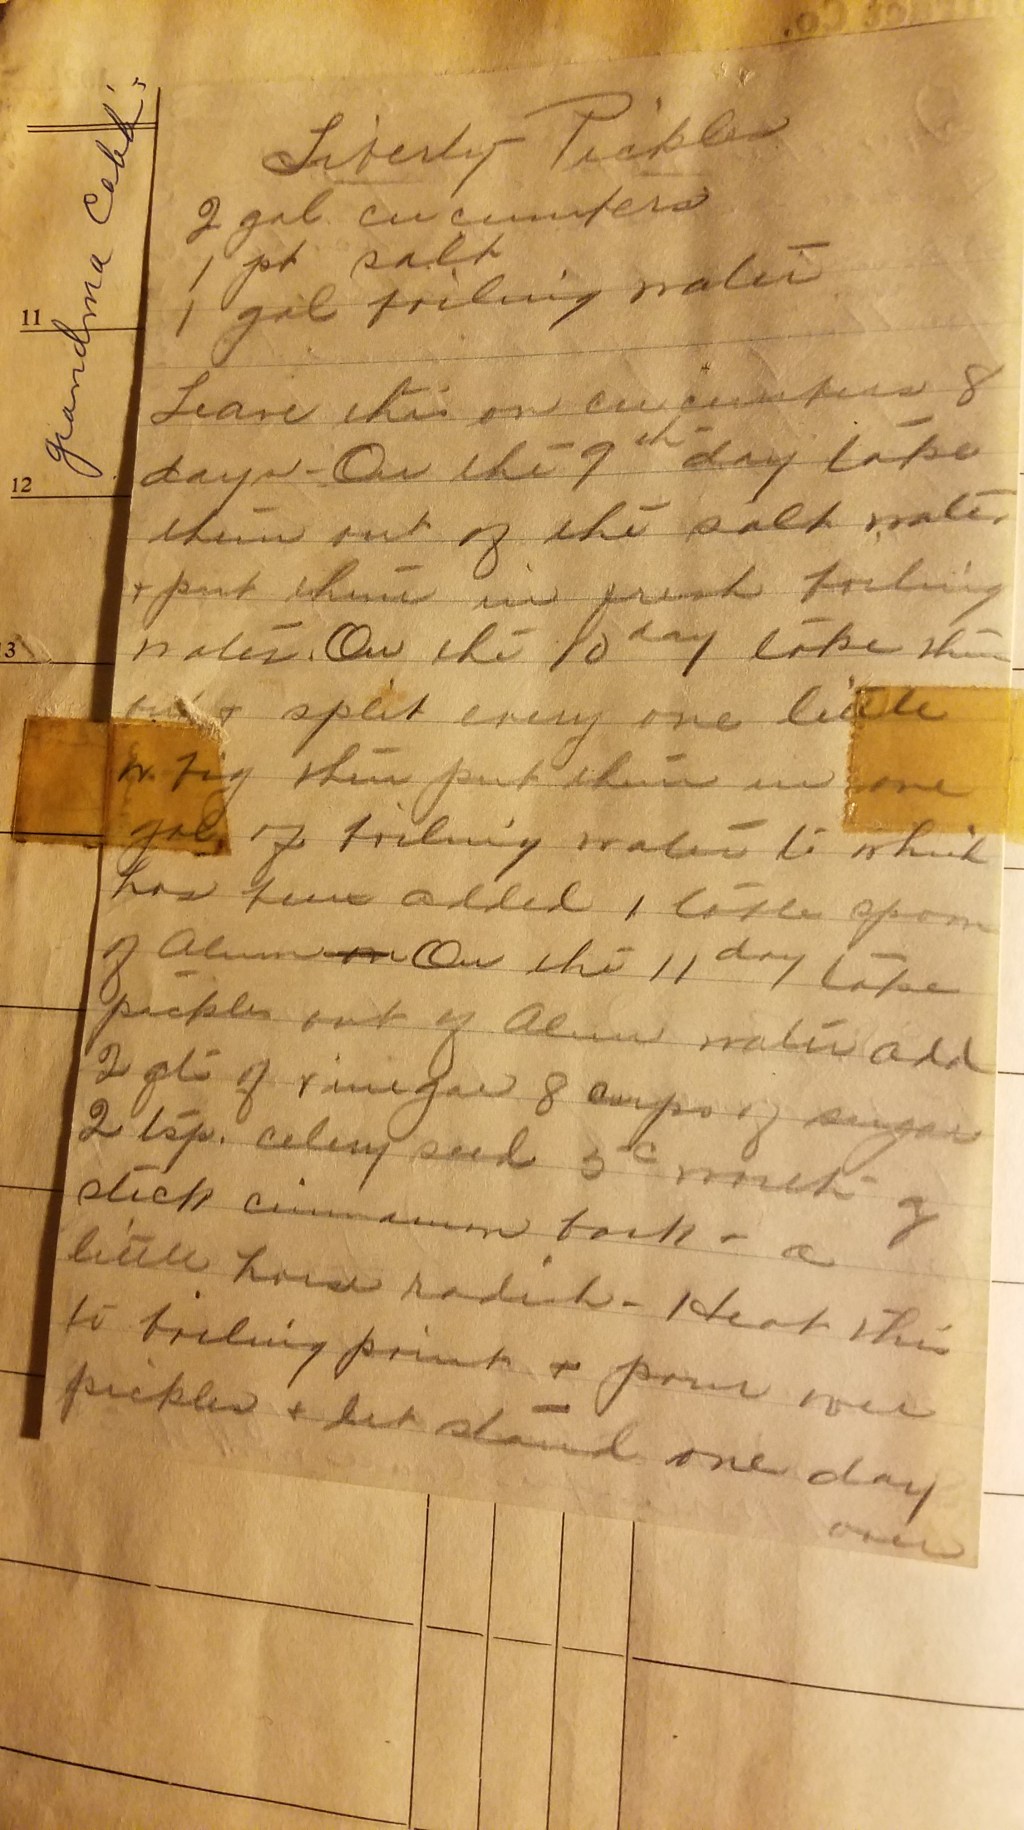 Grandma Cobb's
11
12
13
Liberty Pickles
2 gal cucumbers
1 pt salt
1 gal boiling water
Leave this on cucumbers 8
days - On the 9th day take
them out of the salt water
+ put them in fresh boiling
water. On the 10 day take them
out + split every one little
or big then put them in one
gal of boiling water to which
has been added 1 table spoon
of Alum On the 11 day take
pickles out of Alum water add
2 qts of vinegar 8 cups of sugar
2 tsp. celery seed 5c worth of
stick cinnamon bark - a
little horse radish - Heat this
to boiling point + pour over
pickles + let stand one day
over
Co.